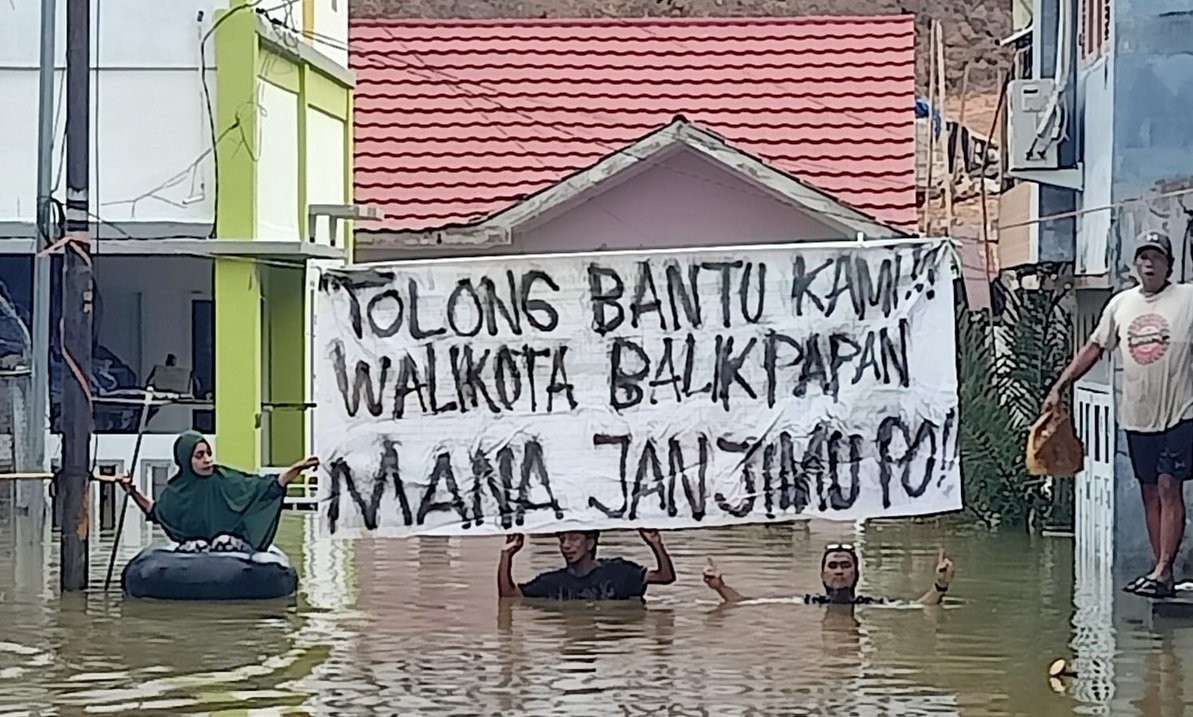 "TOLONG BANTU KAMI!!"
WALIKOTA BALIKPAPAN
MANA JANJIMU PO!!